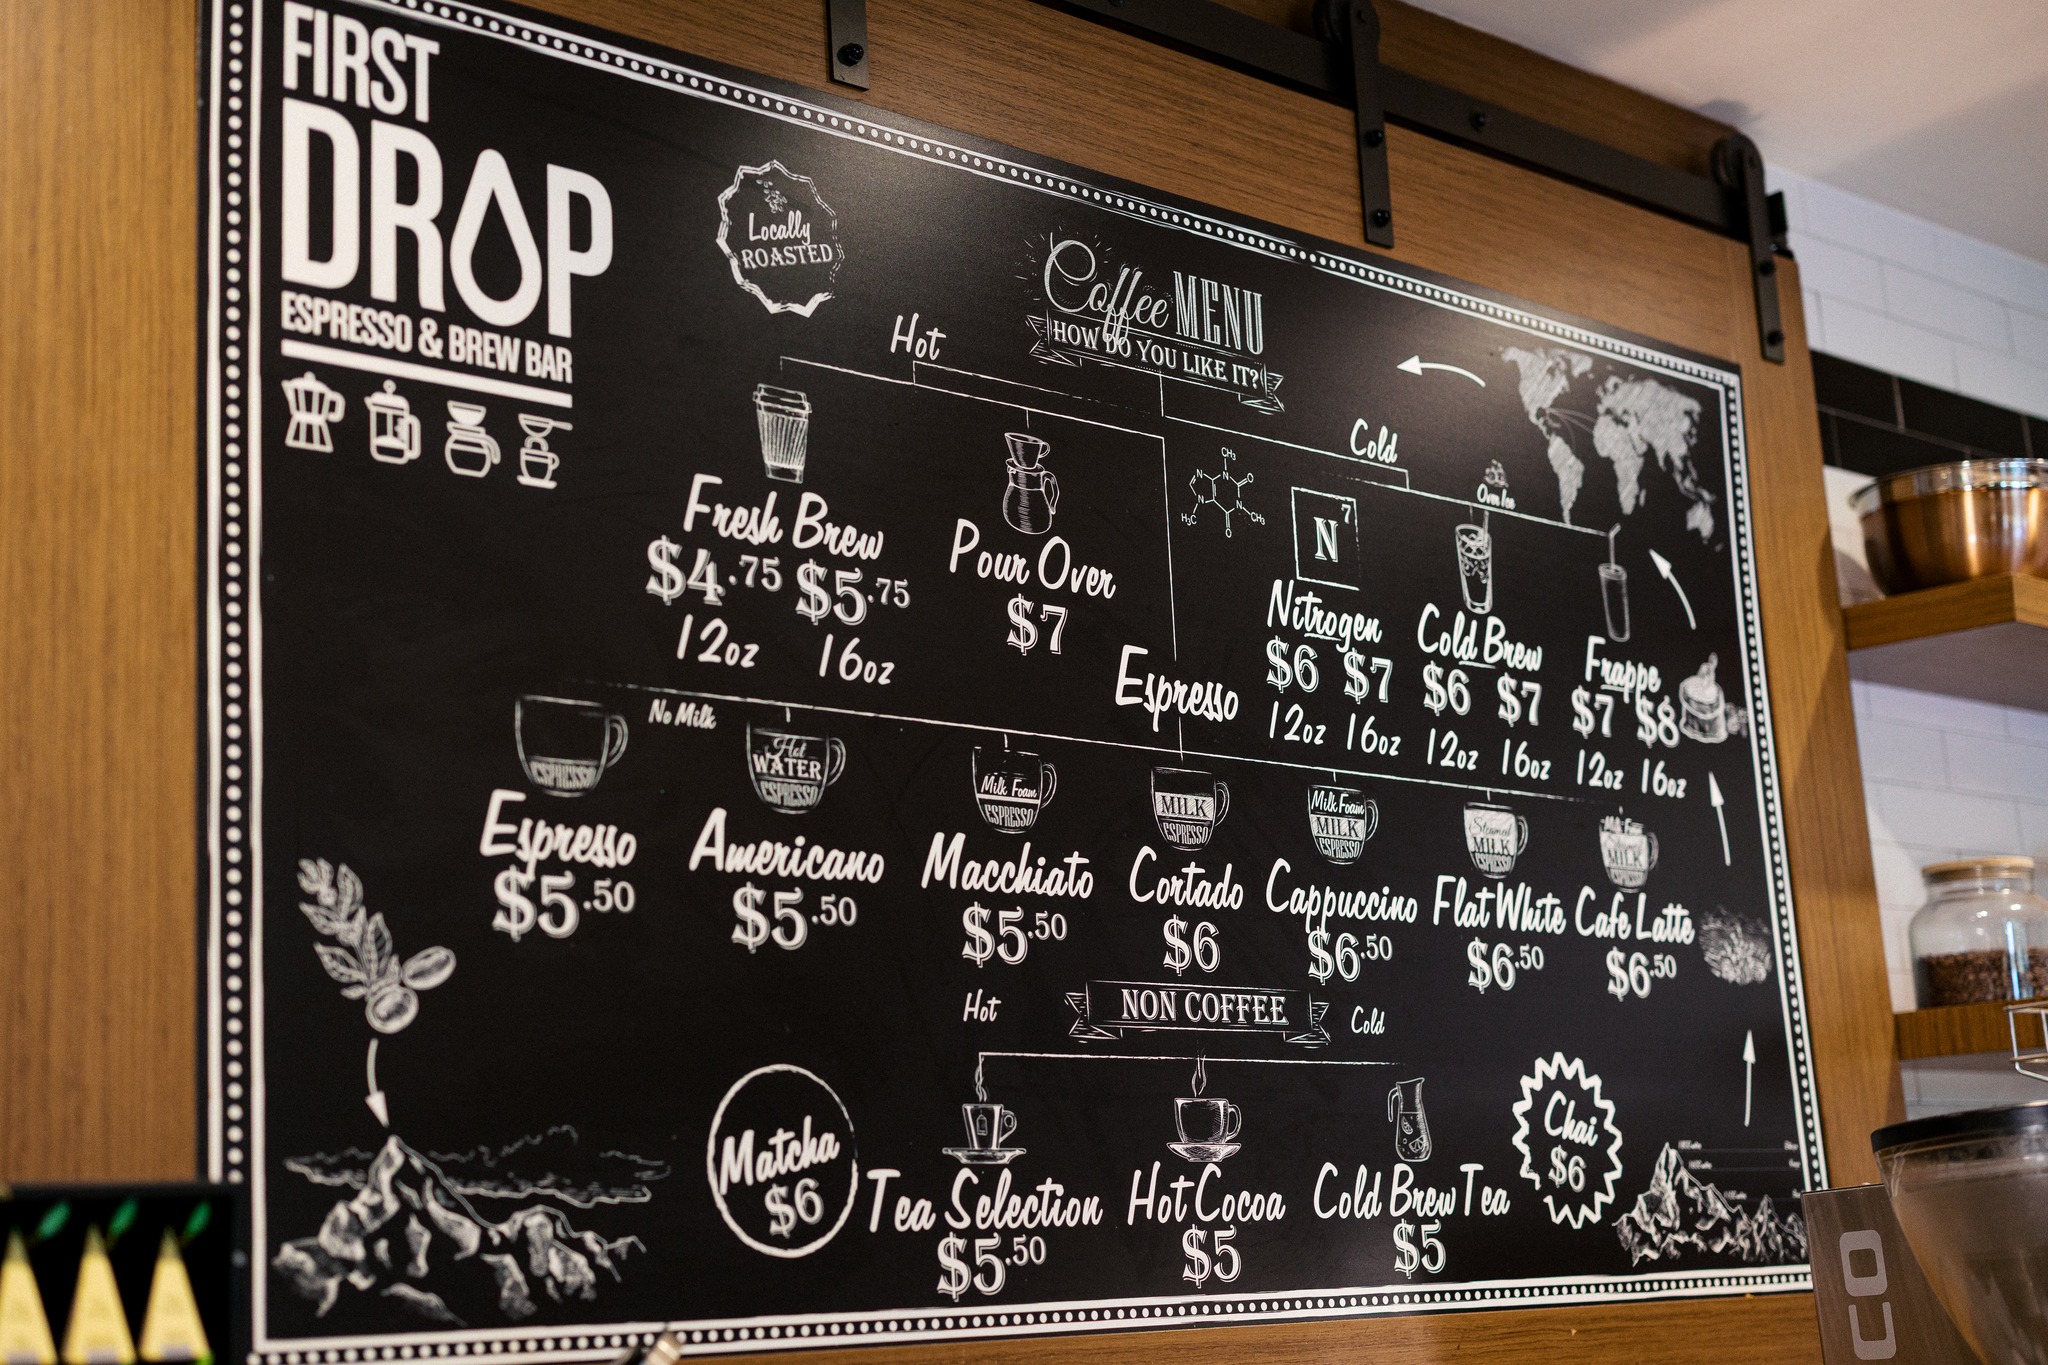 FIRST
DROP
ESPRESSO & BREW BAR
Locally
ROASTED
Coffee MENU
HOW DO YOU LIKE IT?
Hot
Fresh Brew
$4.75 $5.75
12oz 16oz
Pour Over
$7
Cold
CH3
N
N
O
N
N
H3C
CH3
O
N 7
Nitrogen
$6 $7
12oz 16oz
Over Ice
Cold Brew
$6 $7
12oz 16oz
Frappe
$7 $8
12oz 16oz
Espresso
No Milk
ESPRESSO
Espresso
$5.50
Hot
WATER
ESPRESSO
Americano
$5.50
Milk Foam
ESPRESSO
Macchiato
$5.50
MILK
ESPRESSO
Cortado
$6
Milk Foam
MILK
ESPRESSO
Cappuccino
$6.50
Steamed
MILK
ESPRESSO
Flat White
$6.50
Milk Foam
MILK
ESPRESSO
Cafe Latte
$6.50
NON COFFEE
Hot
Cold
Matcha
$6
Tea Selection
$5.50
Hot Cocoa
$5
Cold Brew Tea
$5
Chai
$6